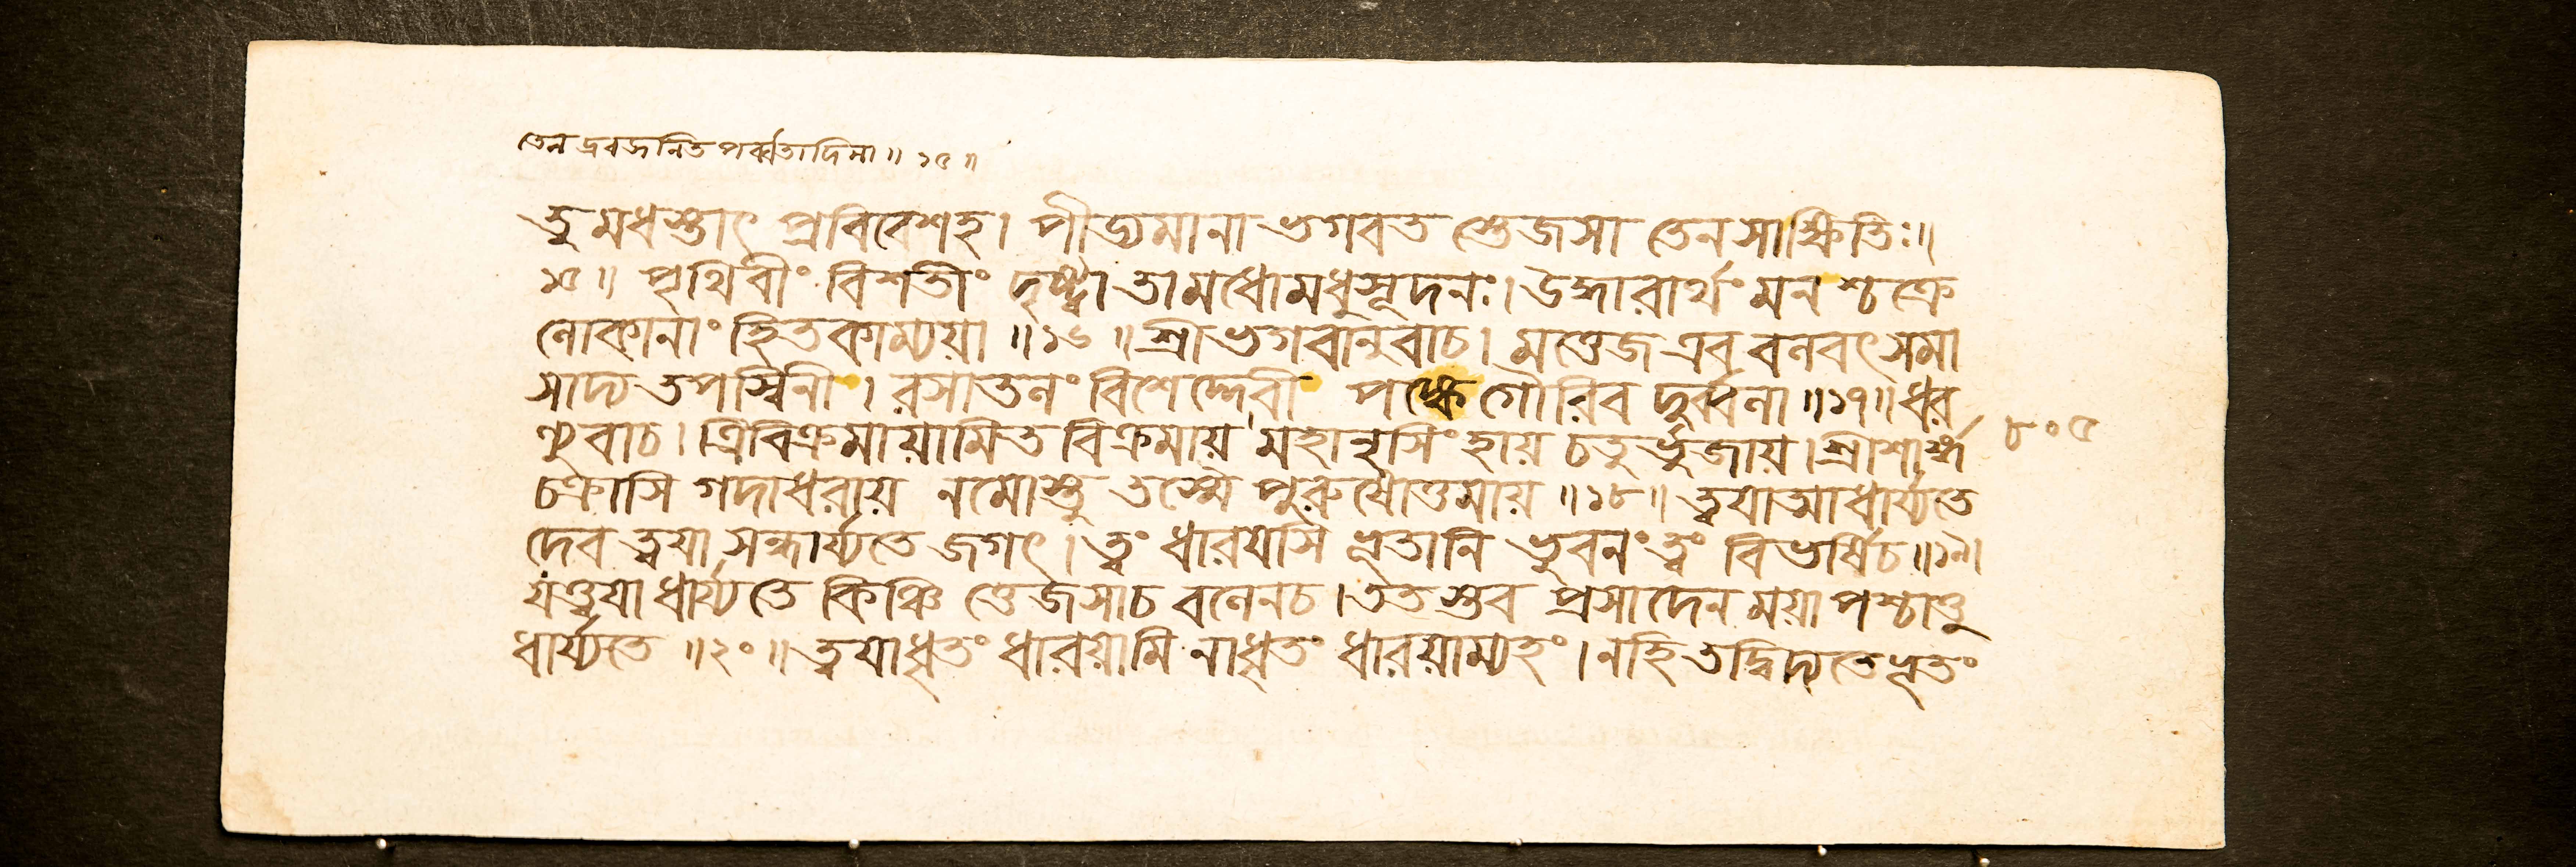 তেন দ্রবজনিত পর্ব্বতাদিনা॥ ১৫॥
দ্রুমধস্তাৎ প্রবিবেশহ। পীড্যমানা ভগবত স্তেজসা তেন সাক্ষিতিঃ॥
১৫॥ পৃথিবীং বিশতীং দৃষ্ট্বা তামধোমধুসূদনঃ। উদ্ধারার্থং মনশ্চক্রে
লোকানাং হিতকাম্যয়া॥১৬॥ শ্রীভগবানুবাচ। মত্তেজ এব বলবৎ সমা
সাদ্য তপস্বিনী। রসাতলং বিশেদ্দেবী পঙ্কে গৌরিব দুর্ব্বলা॥১৭॥ ধর
ণ্যুবাচ। ত্রিবিক্রমায়ামিত বিক্রমায় মহানৃসিংহায় চতুর্ভুজায়। শ্রীশার্ঙ্গ
৮০৫
চক্রাসি গদাধরায় নমোস্তু তস্মৈ পুরুষোত্তমায়॥১৮॥ ত্বযাআধার্য্যতে
দেব ত্বযা সংহার্য্যতে জগৎ। ত্বং ধারযসি ভূতানি ভুবনং ত্বং বিভর্ষিচ॥১৯।
যত্ত্বযা ধার্য্যতে কিঞ্চি ত্তেজসাচ বলেনচ। ততস্তব প্রসাদেন ময়া পশ্চাত্তু
ধার্য্যতে॥২০॥ ত্বযাধৃতং ধারয়ামি নাধৃতং ধারয়াম্যহং। নহি তদ্বিদ্যতেভূতং